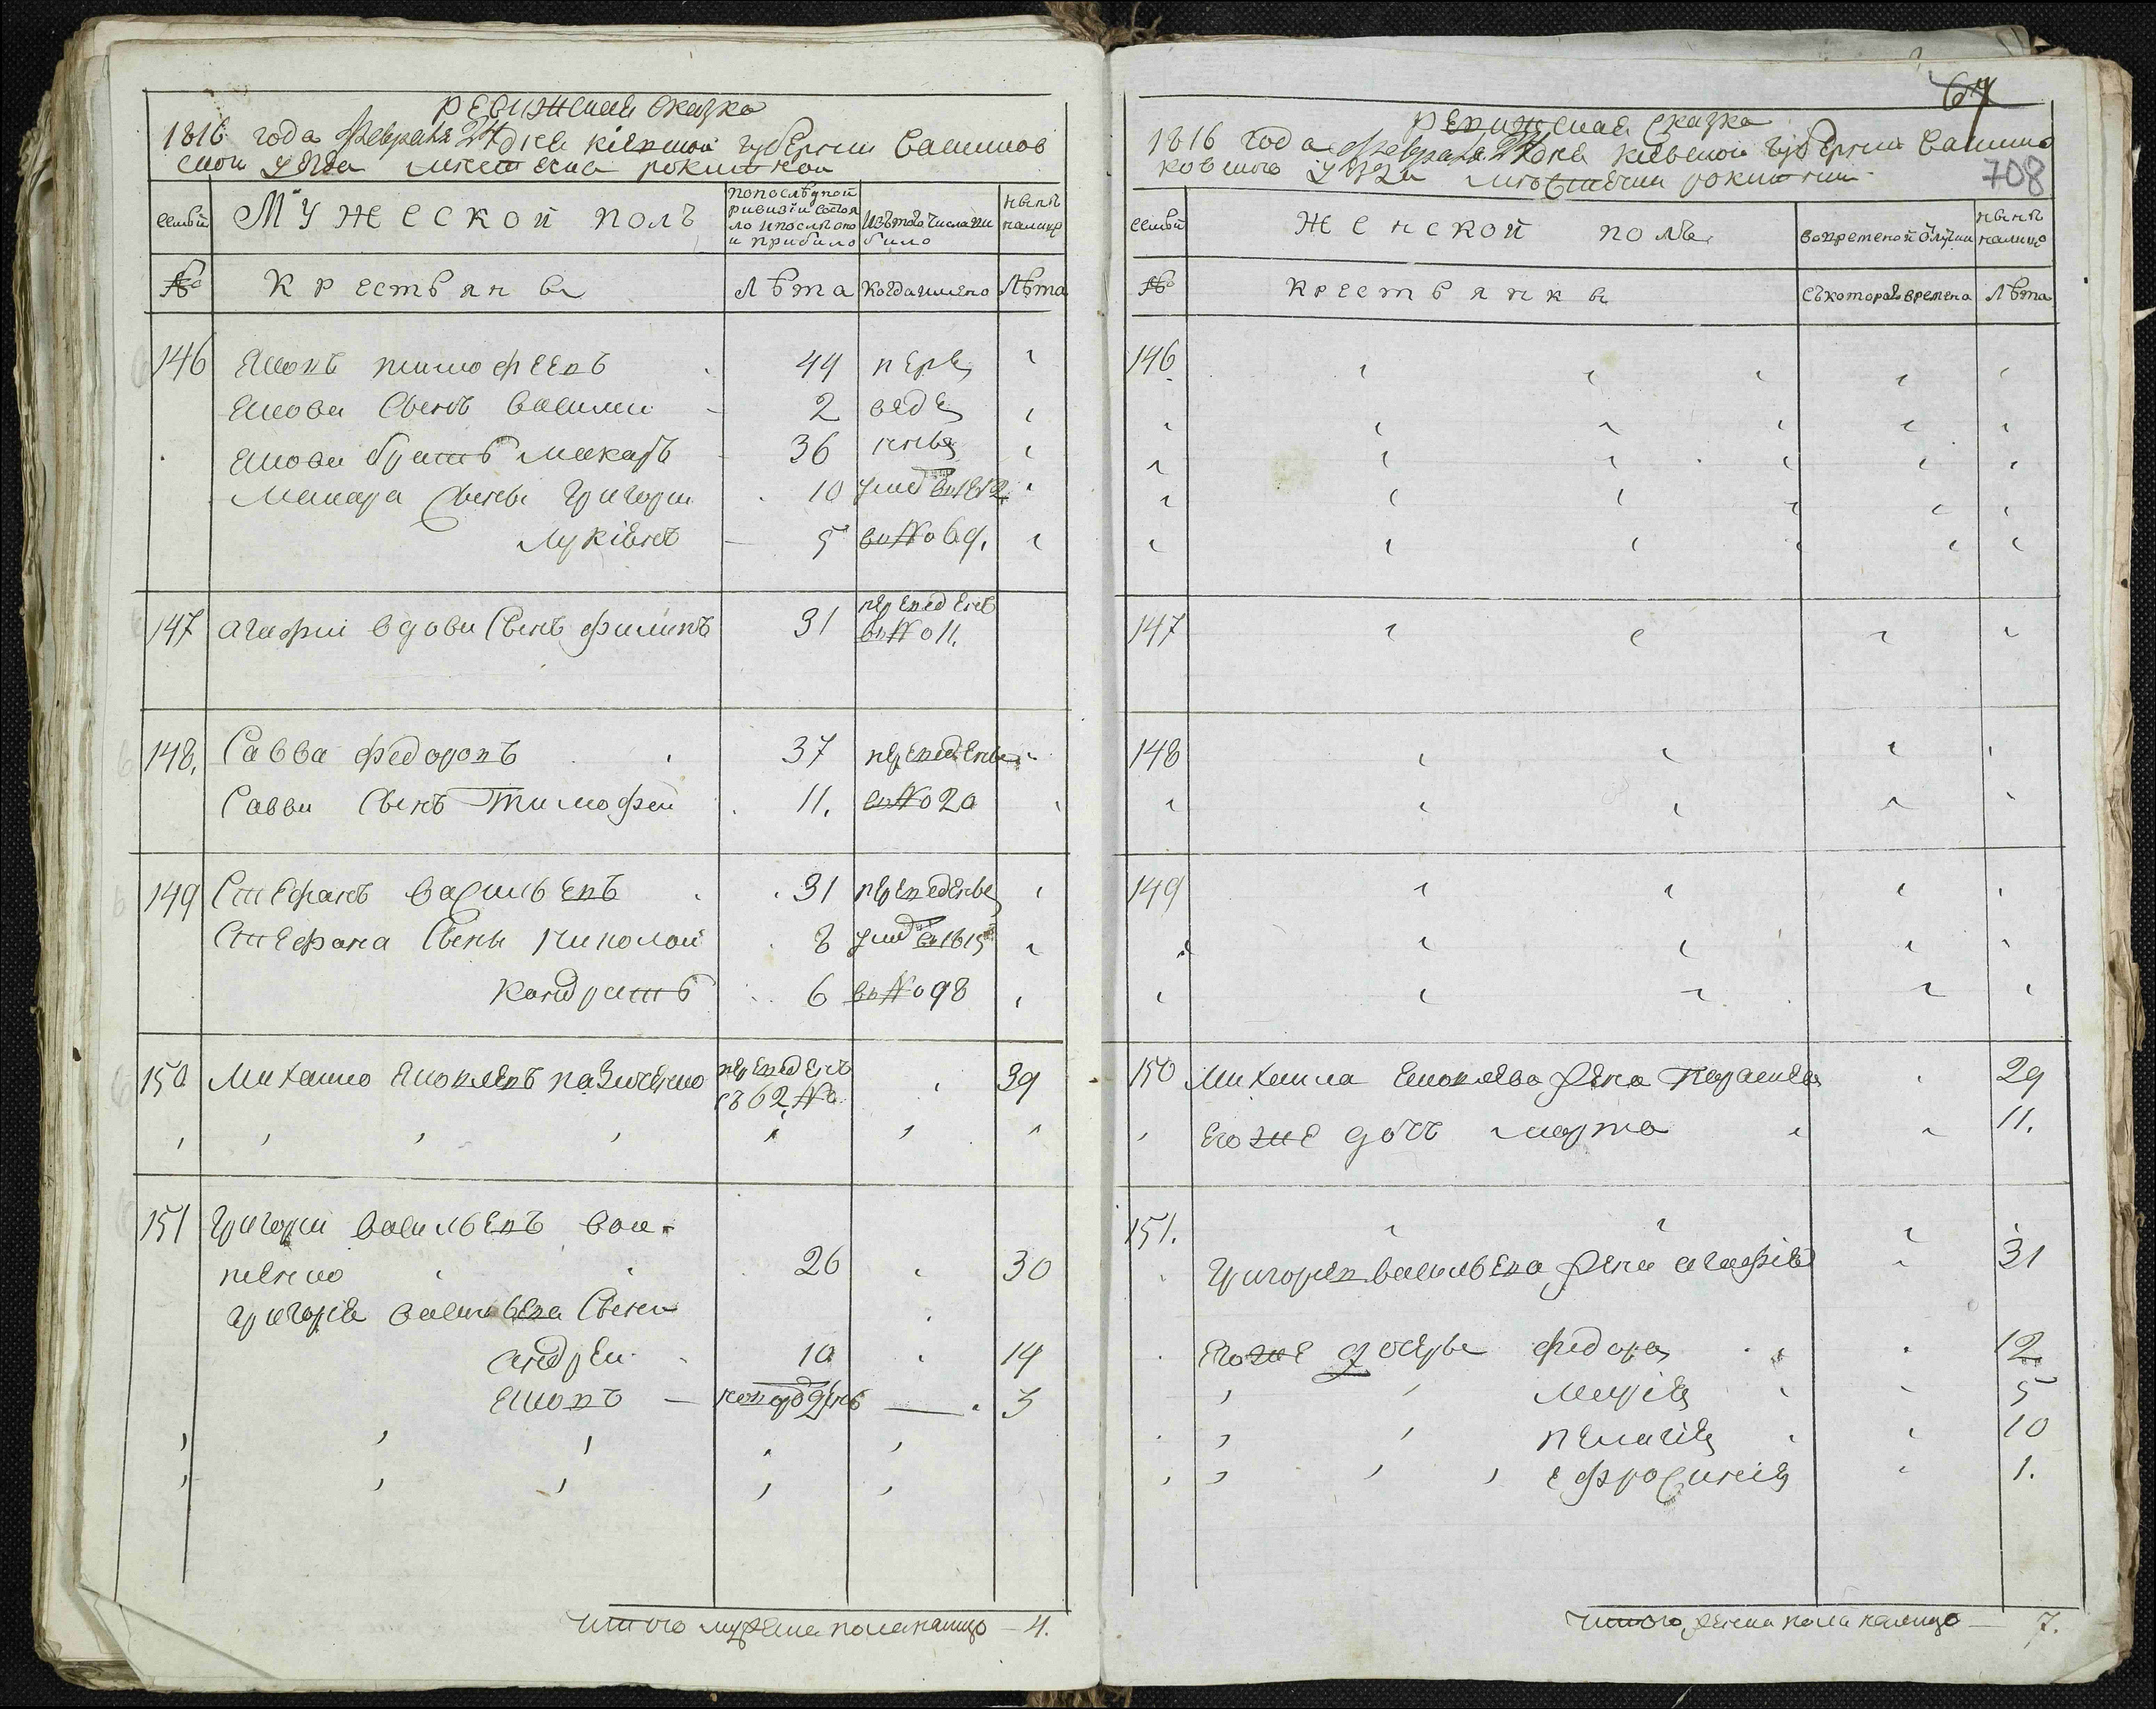 Ревижская Сказка
1816 года Февраля 24 дня Киевской губернии Василков
ской уезда местечка Рокитной
семьи Мужеской полъ
по последной ривизии состояло и после оно и прибило
изъ того числа вибило
ныне налицо
№ Крестьяне Лѣта когда имено Лѣта
146 Яковъ тимофеевъ 44 пере
Якова Сынъ василий 2 веде
Якова братъ макаръ 36 нны
Макара Сыны григорий 10 умер въ 1812
Лукіянъ 5 въ № 69.
147 агафии вдовы Сынъ филипъ 31 переведенъ въ № 11.
148. Савва федоровъ 37 переведены
Саввы Сынъ Тимофей 11. въ № 20
149 Стефанъ васильевъ 31 переведены
Стефана Сыны николай 8 умер въ 1815
кандратъ 6 въ № 98
150 Михайло Яковлевъ переведенъ съ 62 № 39
151 Григорий васильевъ
26 30
григорія васильева Сыны
андрей 10 14
Яковъ — новорожденъ — 3
Итого мужеска пола налицо — 4.
67
708
Ревижская Сказка
1816 года Февраля 24 дня Киевской губернии Василко
ковского уезда местечка рокитной
семьи Женской полъ во временой отлучки ныне налицо
№ Крестьянки съ которого времена Лѣта
146
147
148
149
150 Михайла Яковлева жена Параскева 29
Его же дочъ марта 11.
151.
Григория васильева жена агафія 31
Его же дочеры федора 12
марія 5
пелагія 10
ефросинія 1.
Итого женска пола налицо — 7.